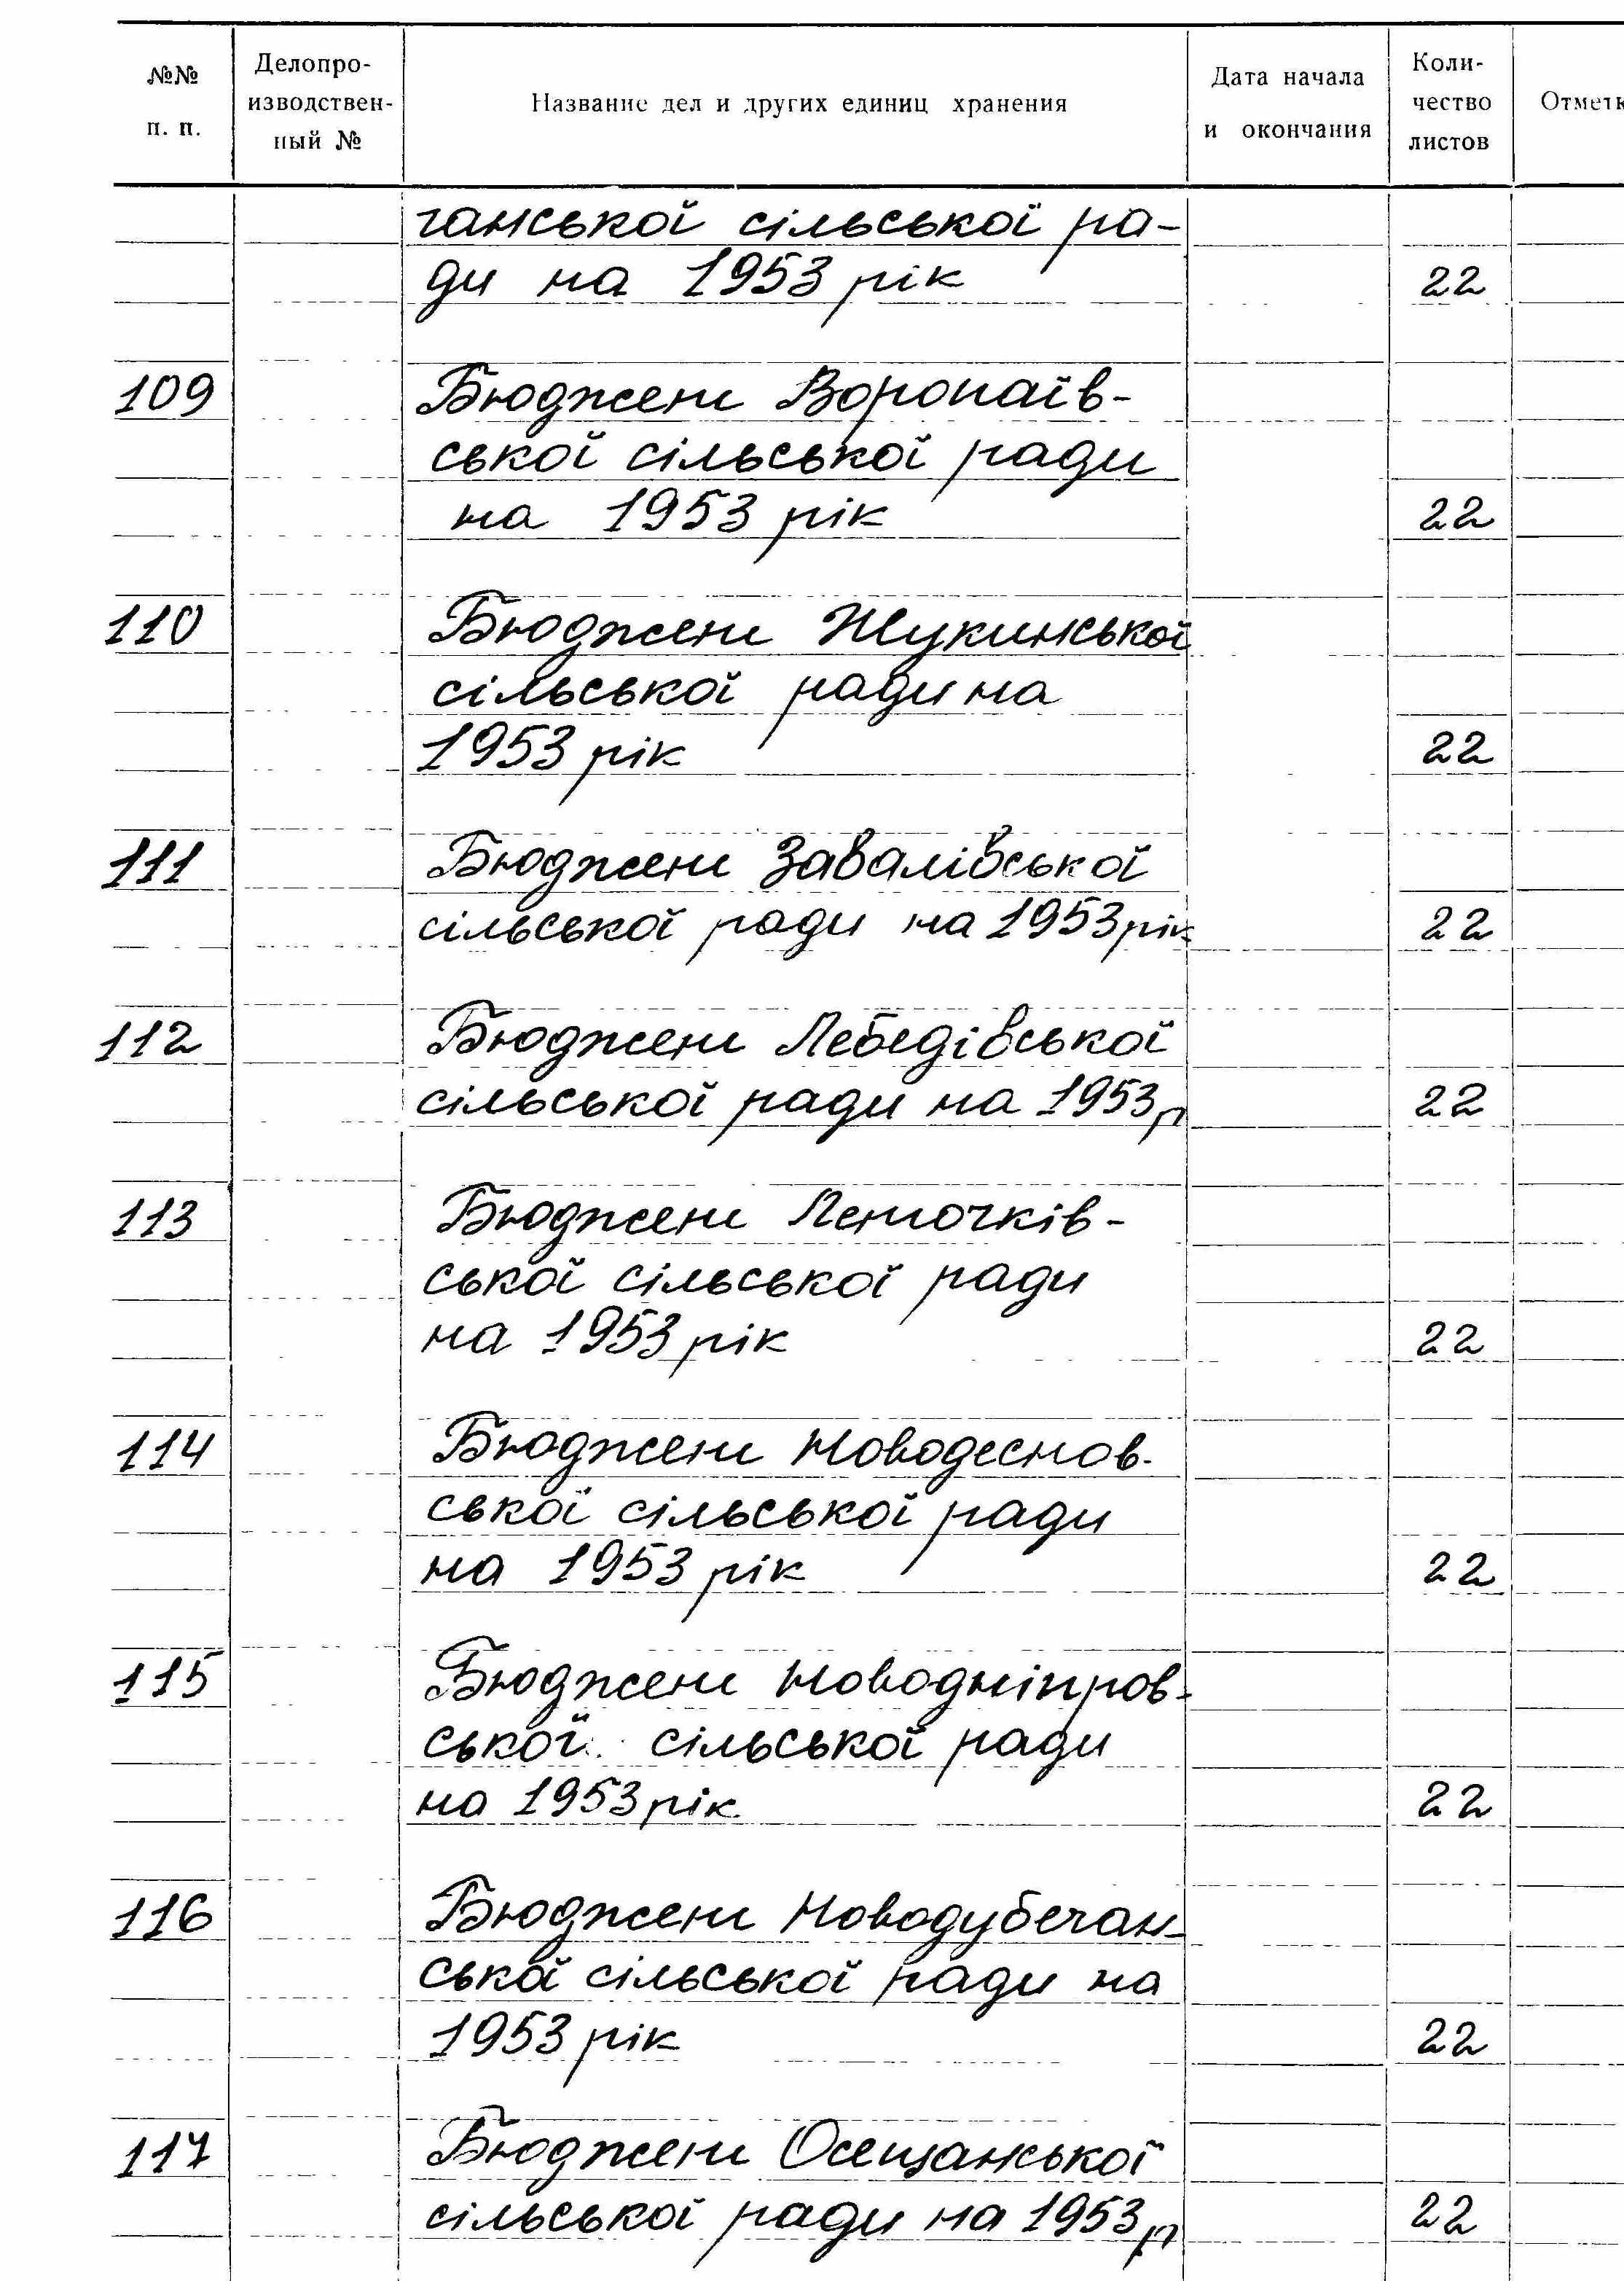 №№ п. п. Делопроизводствен-ный № Название дел и других единиц хранения Дата начала и окончания Коли-чество листов Отметк
ганської сільської ра-
ди на 1953 рік 22
109 Бюджет Воропаїв-
ської сільської ради
на 1953 рік 22
110 Бюджет Жукинської
сільської ради на
1953 рік 22
111 Бюджет Завалівської
сільської ради на 1953 рік 22
112 Бюджет Лебедівської
сільської ради на 1953 р 22
113 Бюджет Леточків-
ської сільської ради
на 1953 рік 22
114 Бюджет Новодеснов-
ської сільської ради
на 1953 рік 22
115 Бюджет Новодніпров-
ської сільської ради
на 1953 рік 22
116 Бюджет Новодубечан-
ської сільської ради на
1953 рік 22
117 Бюджет Осещанської
сільської ради на 1953 р 22